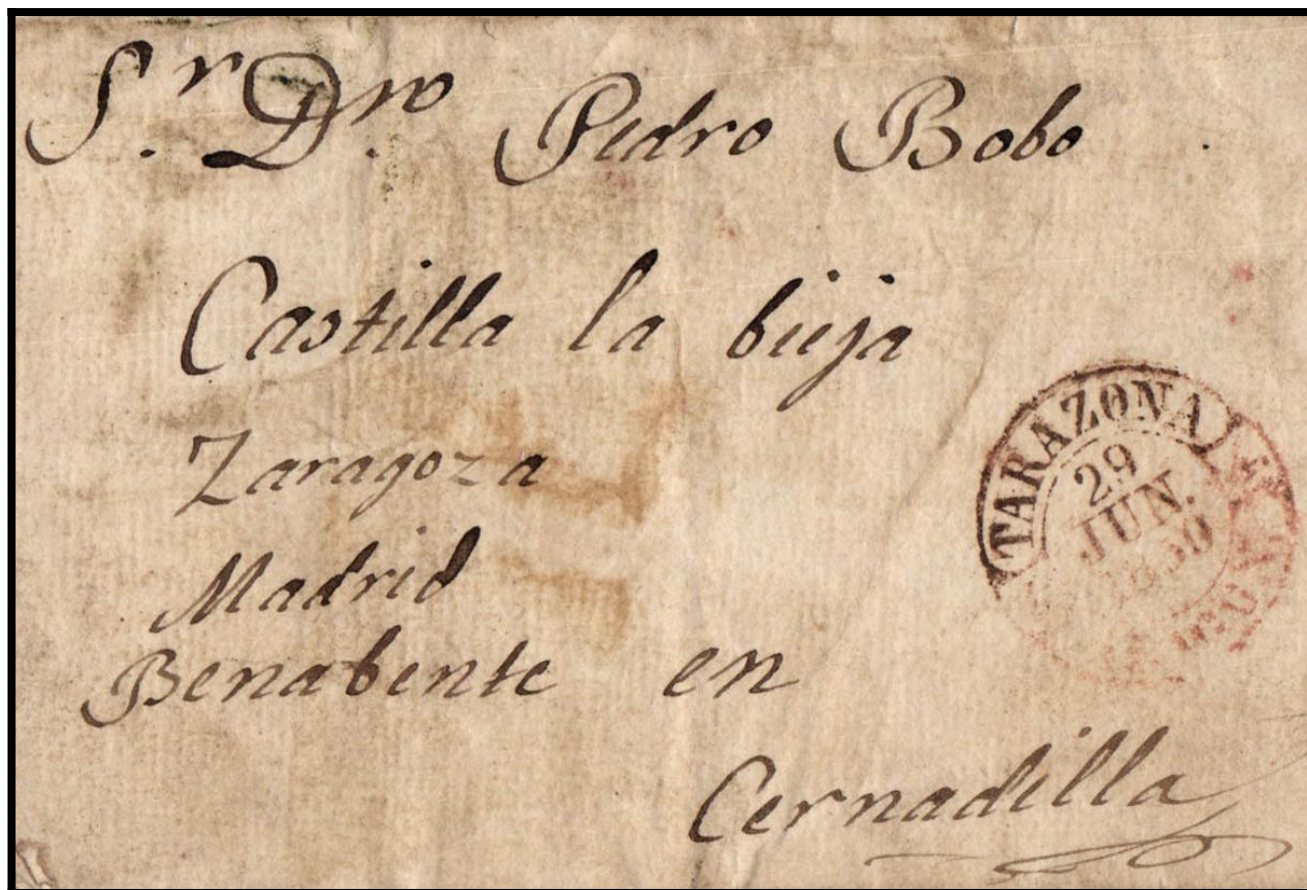 S.r D.n Pedro Bobo
Castilla la bieja
Zaragoza
Madrid
Benabente en
Cernadilla
TARAZONA
29
JUN.
1850